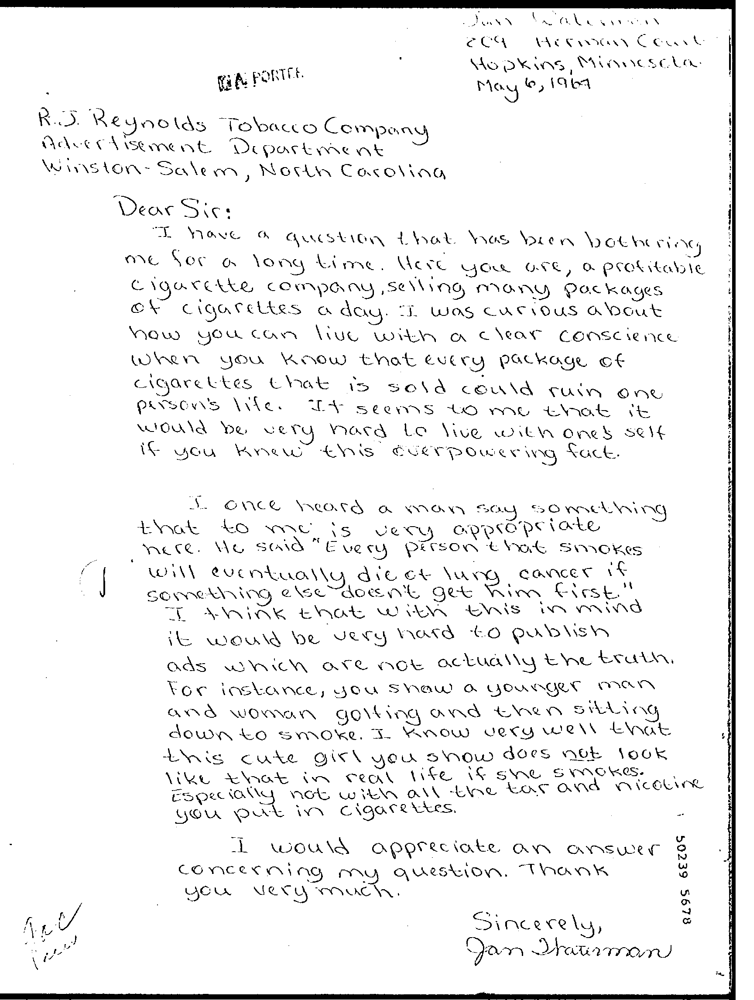 Jan Waterman
209 Herman Court
Hopkins, Minnesota.
May 6, 1969
PORTER
R.J. Reynolds Tobacco Company
Advertisement Department
Winston-Salem, North Carolina
Dear Sir:
I have a question that has been bothering
me for a long time. Here you are, a profitable
cigarette company, selling many packages
of cigarettes a day. I was curious about
how you can live with a clear conscience
when you know that every package of
cigarettes that is sold could ruin one
person's life. It seems to me that it
would be very hard to live with one's self
if you knew this overpowering fact.
I once heard a man say something
that to me is very appropriate
here. He said "Every person that smokes
will eventually die of lung cancer if
something else doesn't get him first."
I think that with this in mind
it would be very hard to publish
ads which are not actually the truth.
For instance, you show a younger man
and woman golfing and then sitting
down to smoke. I know very well that
this cute girl you show does not look
like that in real life if she smokes.
Especially not with all the tar and nicotine
you put in cigarettes.
I would appreciate an answer
concerning my question. Thank
you very much.
Sincerely,
Jan Waterman
50239 5678